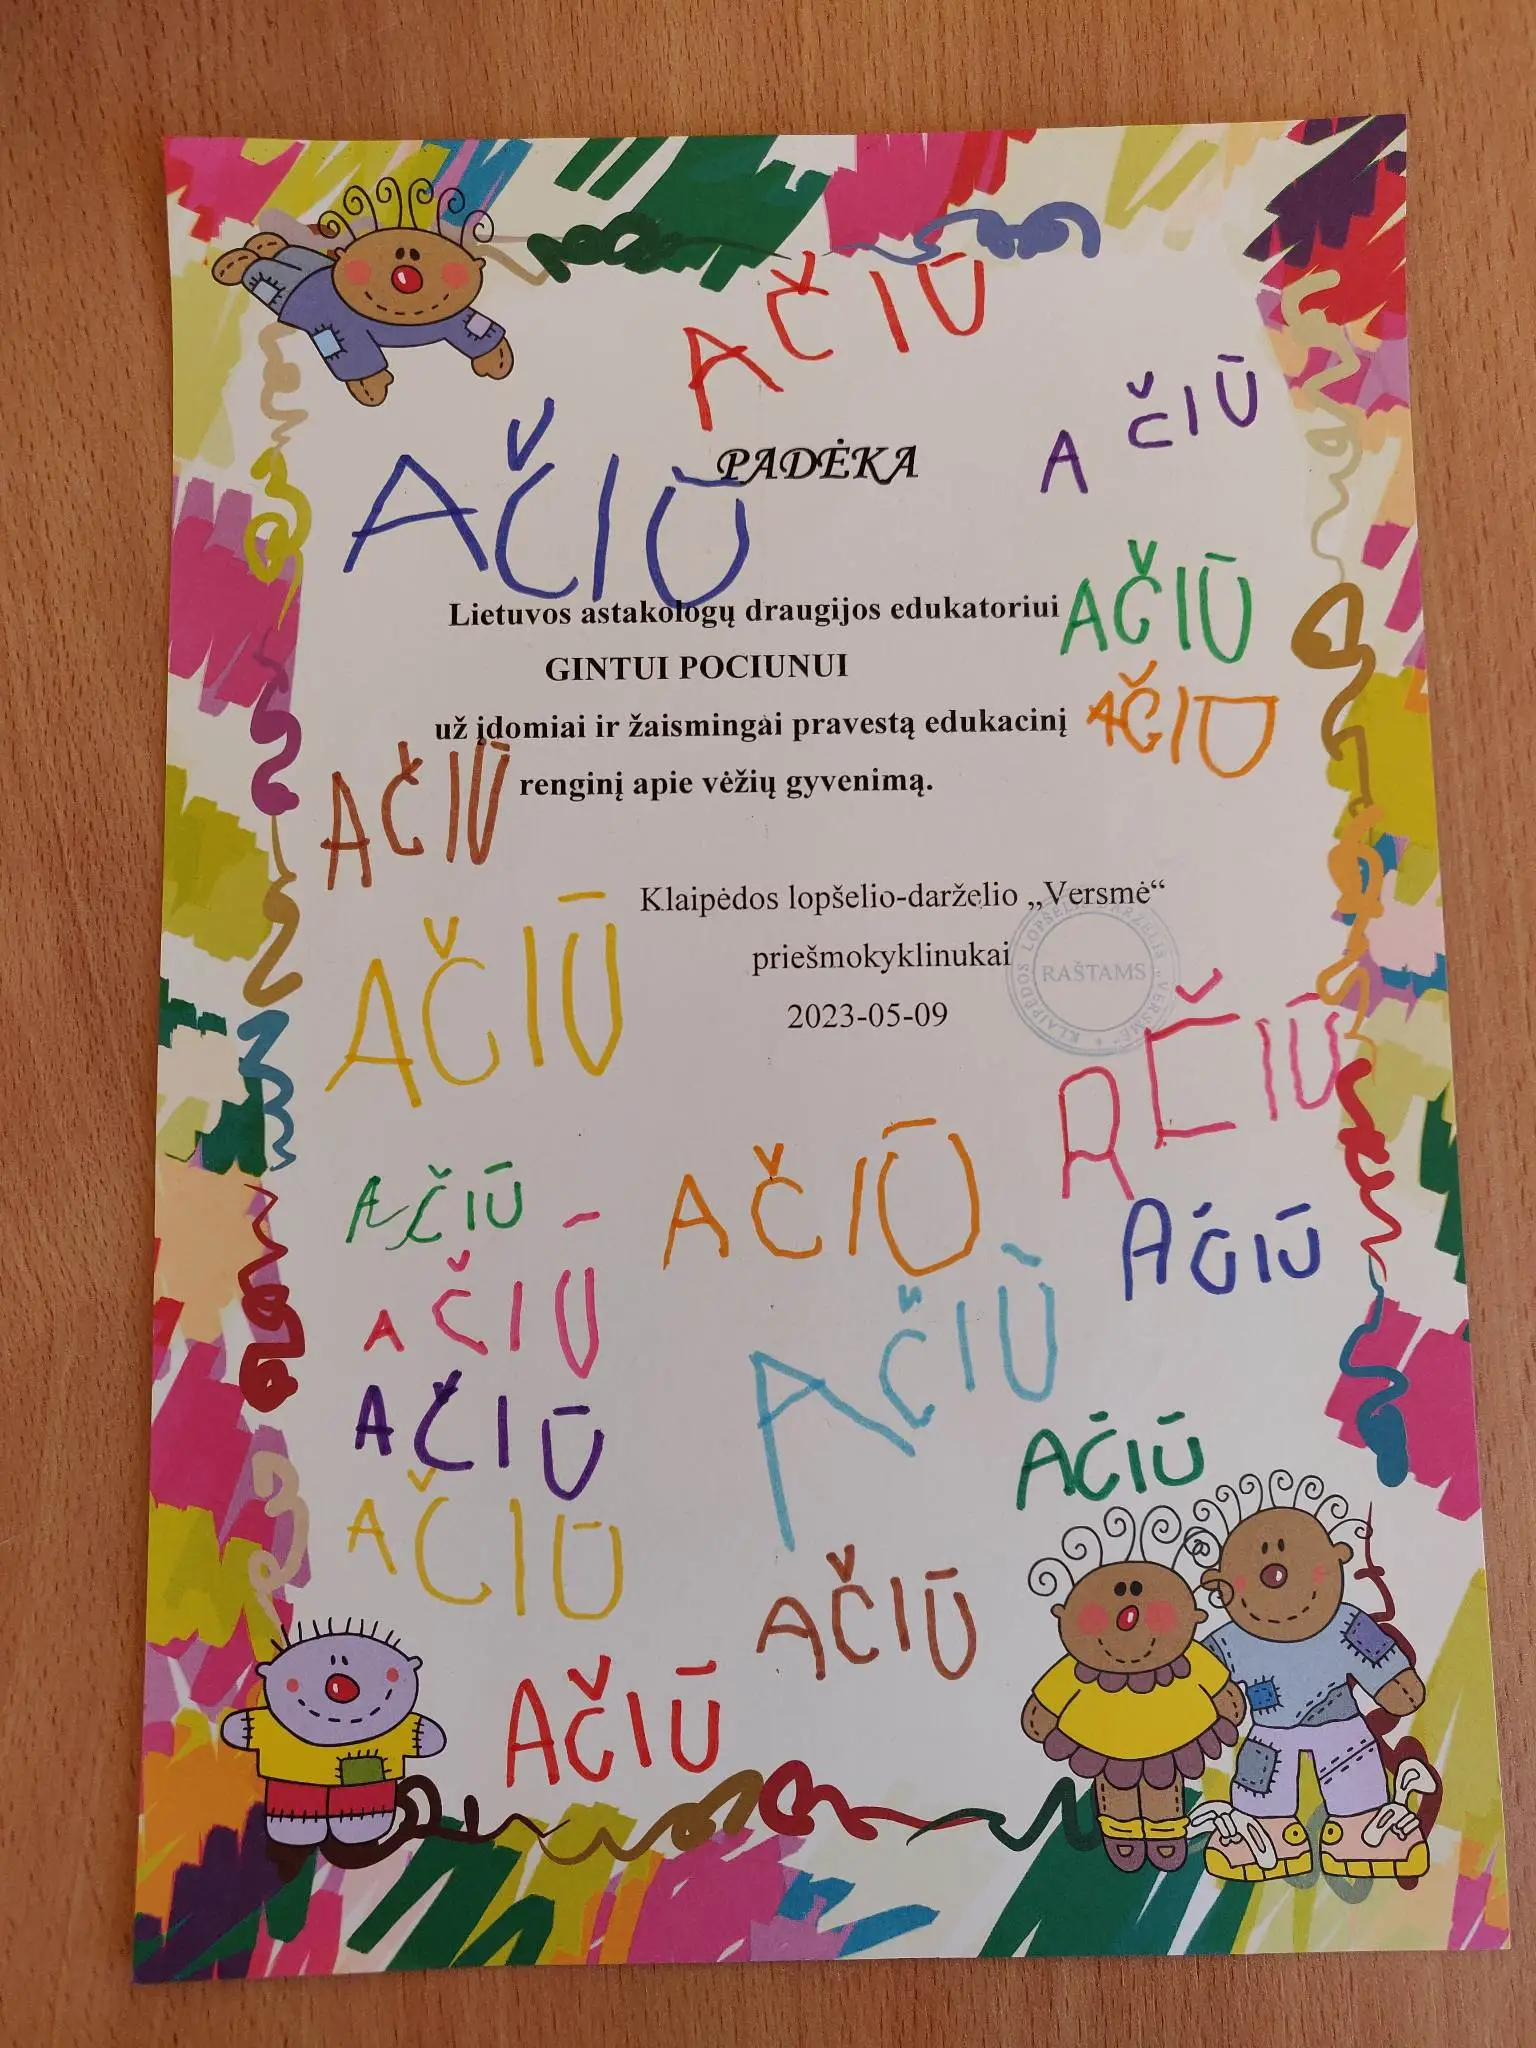 AČIŪ
AČIŪ
PADĖKA
AČIŪ
Lietuvos astakologų draugijos edukatoriui
AČIŪ
GINTUI POCIUNUI
už įdomiai ir žaismingai pravestą edukacinį
AČIŪ
AČIŪ
renginį apie vėžių gyvenimą.
Klaipėdos lopšelio-darželio „Versmė“
priešmokyklinukai
KLAIPĖDOS LOPŠELIS-DARŽELIS „VERSMĖ“
RAŠTAMS
2023-05-09
AČIŪ
AČIŪ
AČIŪ
AČIŪ
AĊIŪ
AČIŪ
AČIŪ
AČIŪ
AČIŪ
AČIŪ
AČIŪ
AČIŪ
AČIŪ